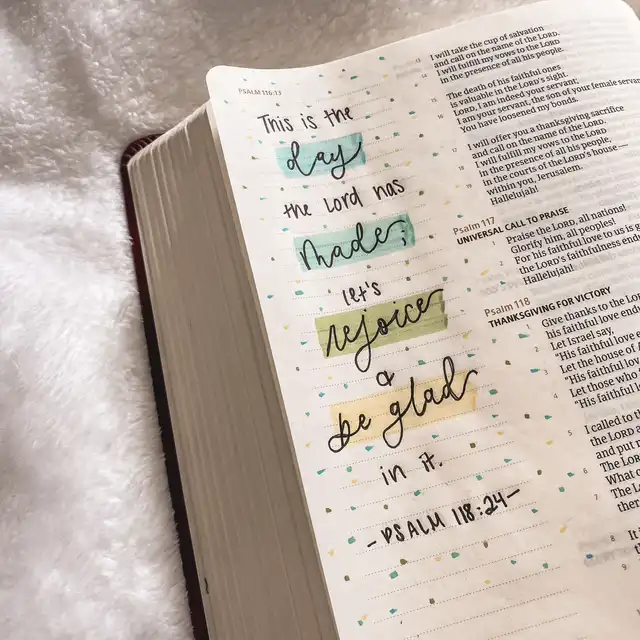 PSALM 116:13
This is the
day
the Lord has
made;
let's
rejoice
&
be glad
in it.
- PSALM 118:24 -
13 I will take the cup of salvation
and call on the name of the LORD.
14 I will fulfill my vows to the LORD
in the presence of all his people.
15 The death of his faithful ones
is valuable in the LORD's sight.
16 LORD, I am indeed your servant;
I am your servant, the son of your female serva
You have loosened my bonds.
17 I will offer you a thanksgiving sacrifice
and call on the name of the LORD.
18 I will fulfill my vows to the LORD
in the presence of all his people,
19 in the courts of the LORD's house —
within you, Jerusalem.
Hallelujah!
Psalm 117
UNIVERSAL CALL TO PRAISE
1 Praise the LORD, all nations!
Glorify him, all peoples!
2 For his faithful love to us is g
the LORD's faithfulness en
Hallelujah!
Psalm 118
THANKSGIVING FOR VICTORY
1 Give thanks to the Lo
his faithful love end
2 Let Israel say,
"His faithful love
3 Let the house of
"His faithful
4 Let those who
"His faithful
5 I called to
the LORD a
and put
6 The LOR
What
7 The LO
ther
8 It
9